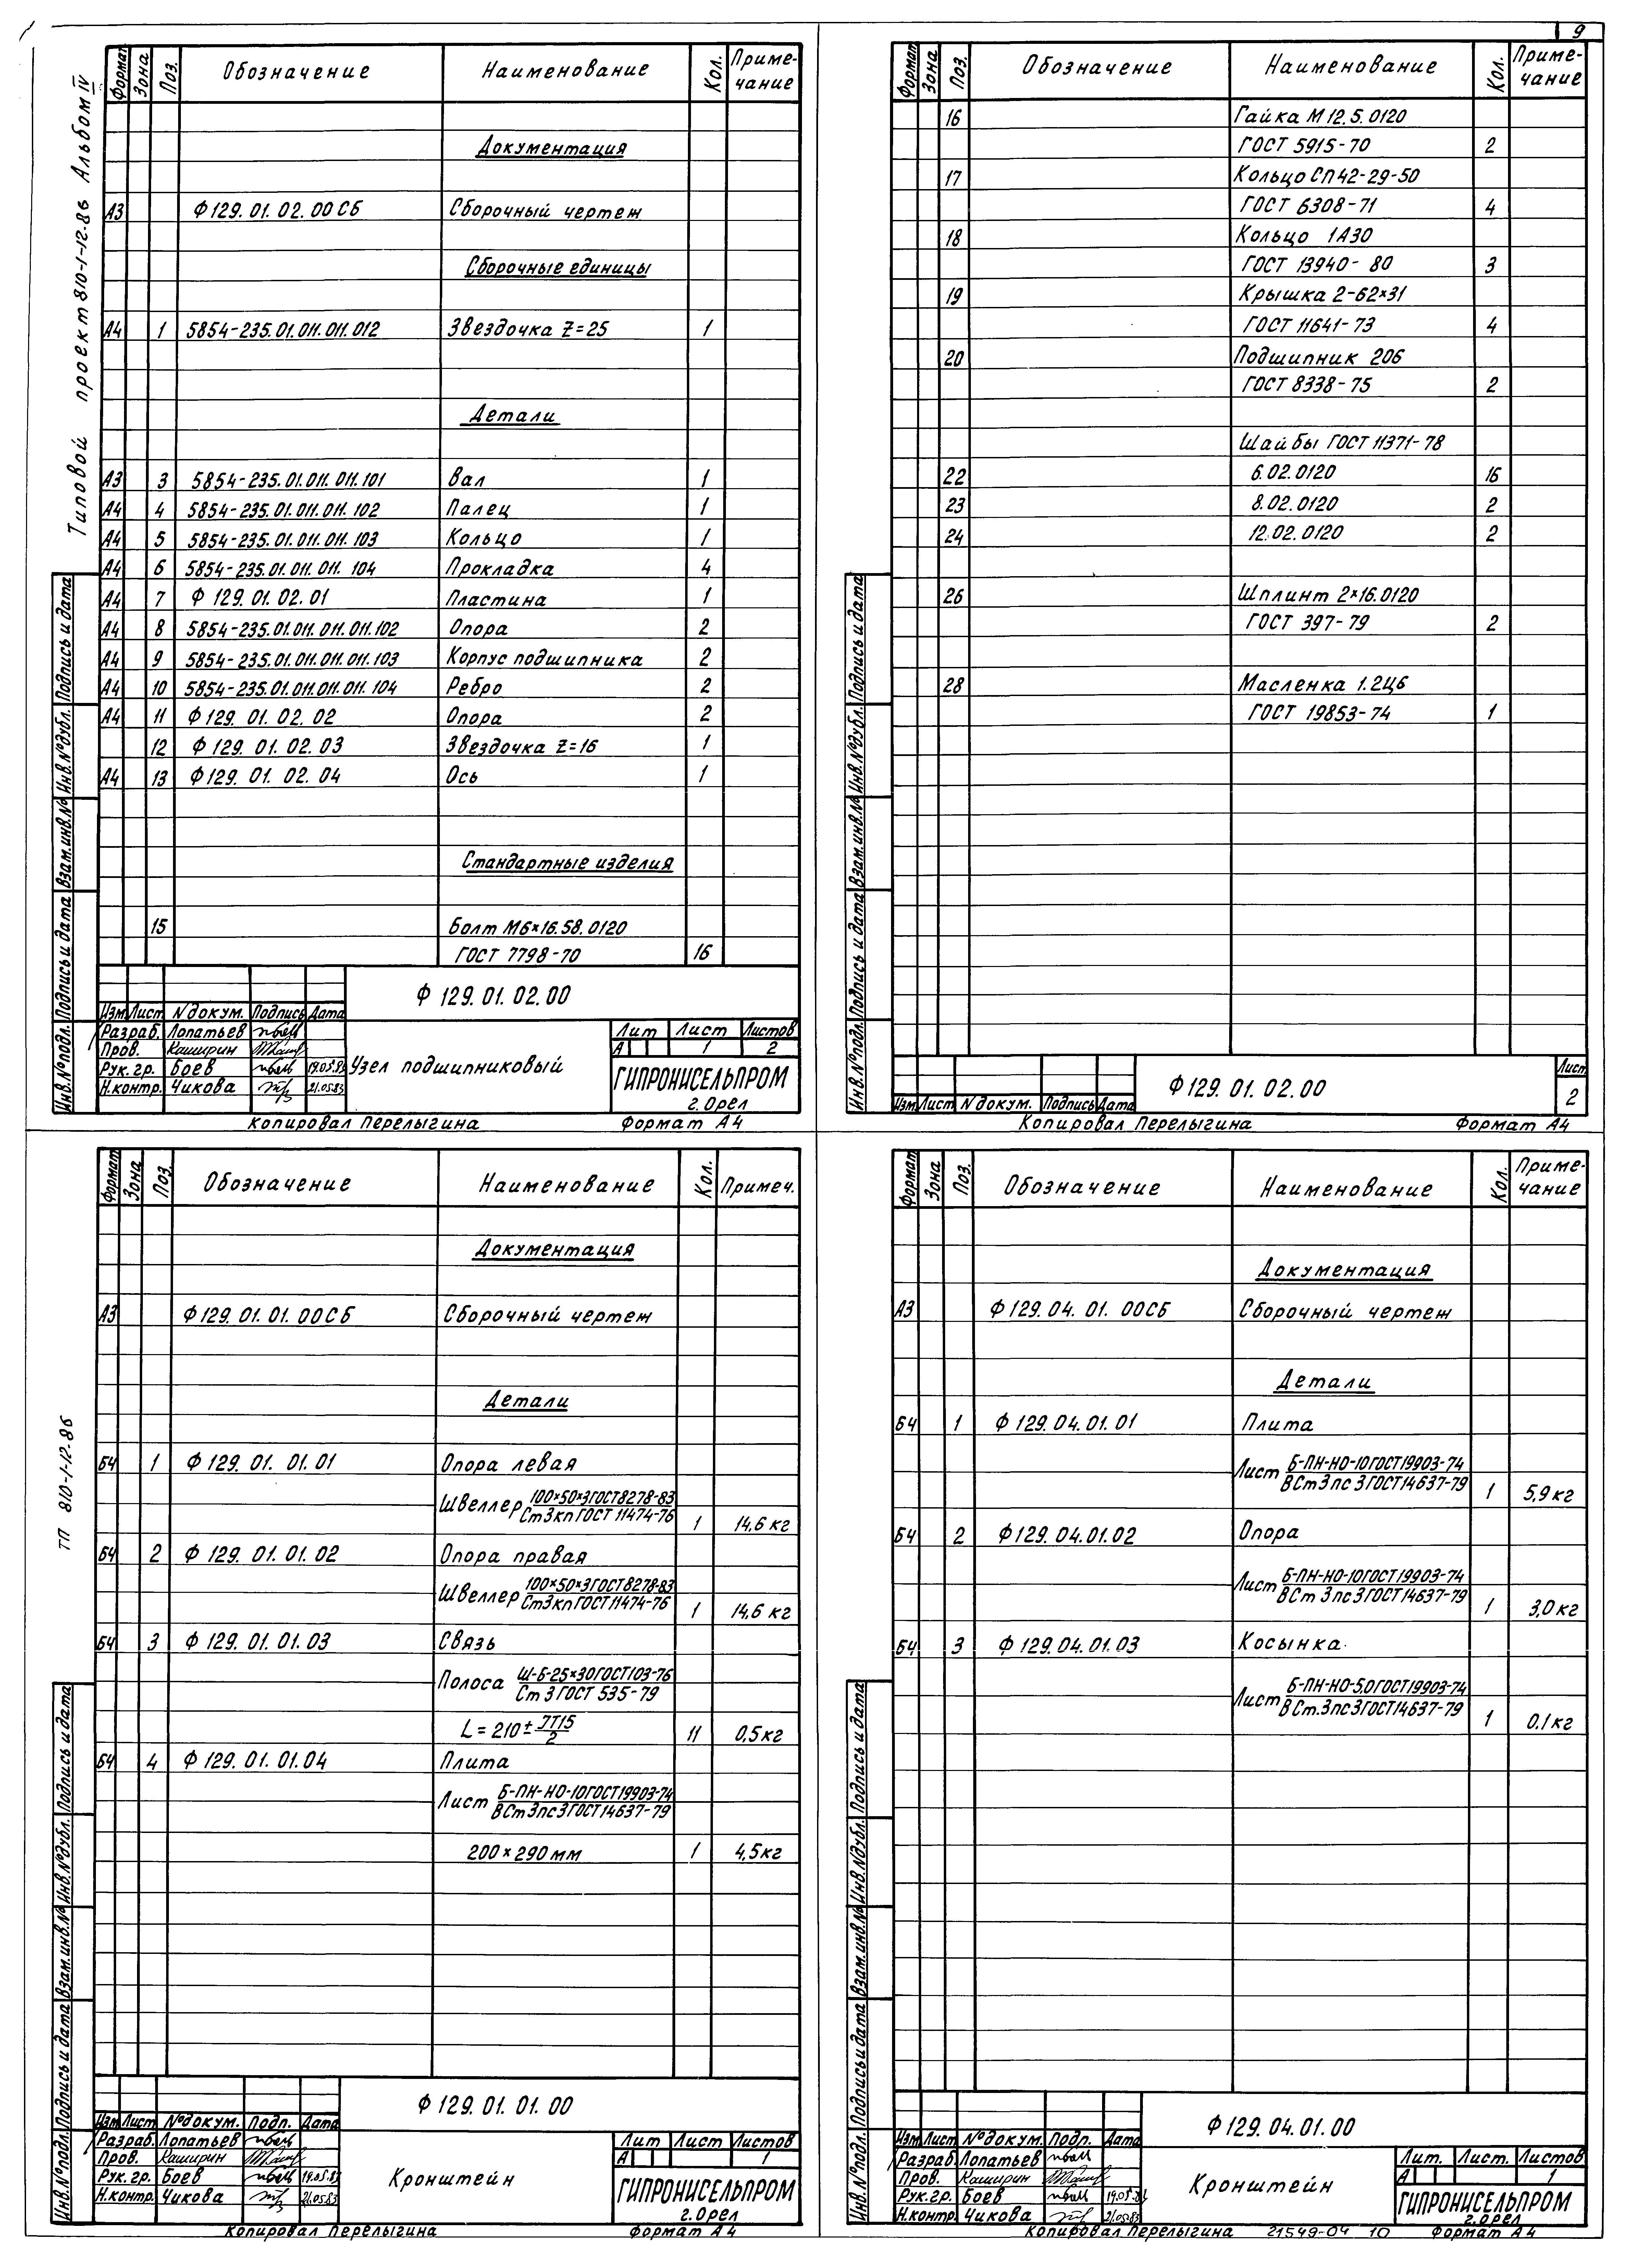 9
Типовой проект 810-1-12.86 Альбом IV
Формат Зона Поз. Обозначение Наименование Кол. Приме-
чание
Документация
А3 Ф129.01.02.00СБ Сборочный чертеж
Сборочные единицы
А4 1 5854-235.01.011.011.012 Звездочка Z=25 1
Детали
А3 3 5854-235.01.011.011.101 Вал 1
А4 4 5854-235.01.011.011.102 Палец 1
А4 5 5854-235.01.011.011.103 Кольцо 1
А4 6 5854-235.01.011.011.104 Прокладка 4
А4 7 Ф 129.01.02.01 Пластина 1
А4 8 5854-235.01.011.011.011.102 Опора 2
А4 9 5854-235.01.011.011.011.103 Корпус подшипника 2
А4 10 5854-235.01.011.011.011.104 Ребро 2
А4 11 Ф129.01.02.02 Опора 2
12 Ф129.01.02.03 Звездочка Z=16 1
А4 13 Ф129.01.02.04 Ось 1
Стандартные изделия
15 Болт М6×16.58.0120
ГОСТ 7798-70 16
Ф 129.01.02.00
Изм Лист N докум. Подпись Дата
Разраб. Лопатьев
Пров. Каширин
Рук. гр. Боев 19.05.83
Н.контр. Чикова 21.05.83
Узел подшипниковый
Лит Лист Листов
А 1 2
ГИПРОНИСЕЛЬПРОМ
г.Орел
Копировал Перелыгина Формат А4
Инв.№подл. Подпись и дата Взам.инв.№ Инв.№дубл. Подпись и дата
Формат Зона Поз. Обозначение Наименование Кол. Приме-
чание
16 Гайка М12.5.0120
ГОСТ 5915-70 2
17 Кольцо СП42-29-50
ГОСТ 6308-71 4
18 Кольцо 1А30
ГОСТ 13940-80 3
19 Крышка 2-62×31
ГОСТ 11641-73 4
20 Подшипник 206
ГОСТ 8338-75 2
Шайбы ГОСТ 11371-78
22 6.02.0120 16
23 8.02.0120 2
24 12.02.0120 2
26 Шплинт 2×16.0120
ГОСТ 397-79 2
28 Масленка 1.2Ц6
ГОСТ 19853-74 1
Изм Лист N докум. Подпись Дата
Ф129.01.02.00
Лист
2
Копировал Перелыгина Формат А4
Инв.№подл. Подпись и дата Взам.инв.№ Инв.№дубл. Подпись и дата
ТП 810-1-12.86
Формат Зона Поз. Обозначение Наименование Кол. Примеч.
Документация
А3 Ф129.01.01.00СБ Сборочный чертеж
Детали
Б4 1 Ф129.01.01.01 Опора левая
Швеллер 100×50×3ГОСТ8278-83
Ст3кпГОСТ 11474-76 1 14,6 кг
Б4 2 Ф129.01.01.02 Опора правая
Швеллер 100×50×3ГОСТ8278-83
Ст3кпГОСТ11474-76 1 14,6 кг
Б4 3 Ф129.01.01.03 Связь
Полоса Ш-Б-25×30ГОСТ103-76
Ст 3 ГОСТ 535-79
L=210±JT15/2 11 0,5кг
Б4 4 Ф129.01.01.04 Плита
Лист Б-ПН-НО-10ГОСТ19903-74
ВСт3пс3ГОСТ14637-79
200×290мм 1 4,5кг
Ф129.01.01.00
Изм Лист №докум. Подп. Дата
Разраб. Лопатьев
Пров. Каширин
Рук. гр. Боев 19.05.83
Н.контр. Чикова 21.05.83
Кронштейн
Лит Лист Листов
А 1
ГИПРОНИСЕЛЬПРОМ
г.Орел
Копировал Перелыгина Формат А4
Инв.№подл. Подпись и дата Взам.инв.№ Инв.№дубл. Подпись и дата
Формат Зона Поз. Обозначение Наименование Кол. Приме-
чание
Документация
А3 Ф129.04.01.00СБ Сборочный чертеж
Детали
Б4 1 Ф129.04.01.01 Плита
Лист Б-ПН-НО-10ГОСТ19903-74
ВСт3пс3ГОСТ14637-79 1 5,9кг
Б4 2 Ф129.04.01.02 Опора
Лист Б-ПН-НО-10ГОСТ19903-74
ВСт3пс3ГОСТ14637-79 1 3,0кг
Б4 3 Ф129.04.01.03 Косынка
Лист Б-ПН-НО-5,0ГОСТ19903-74
ВСт.3пс3ГОСТ14637-79 1 0,1кг
Ф129.04.01.00
Изм Лист №докум. Подп. Дата
Разраб. Лопатьев
Пров. Каширин
Рук.гр. Боев 19.05.83
Н.контр. Чикова 21.05.83
Кронштейн
Лит. Лист. Листов
А 1
ГИПРОНИСЕЛЬПРОМ
г.Орел
Копировал Перелыгина 21549-04 10 Формат А4
Инв.№подл. Подпись и дата Взам.инв.№ Инв.№дубл. Подпись и дата